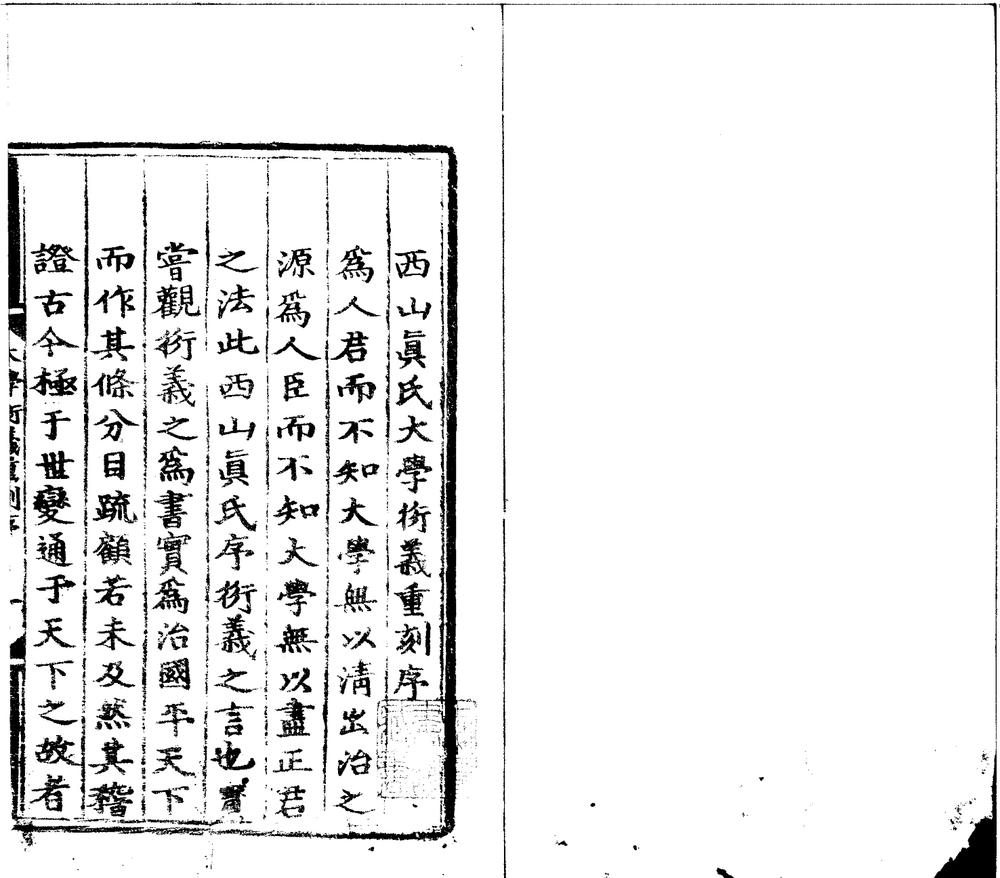 西山眞氏大學衍義重刻序
爲人君而不知大學無以淸出治之
源爲人臣而不知大學無以盡正君
之法此西山眞氏序衍義之言也實
嘗觀衍義之爲書實爲治國平天下
而作其條分目疏顧若未及然其稽
證古今極于世變通于天下之故者
大學衍義重刻序